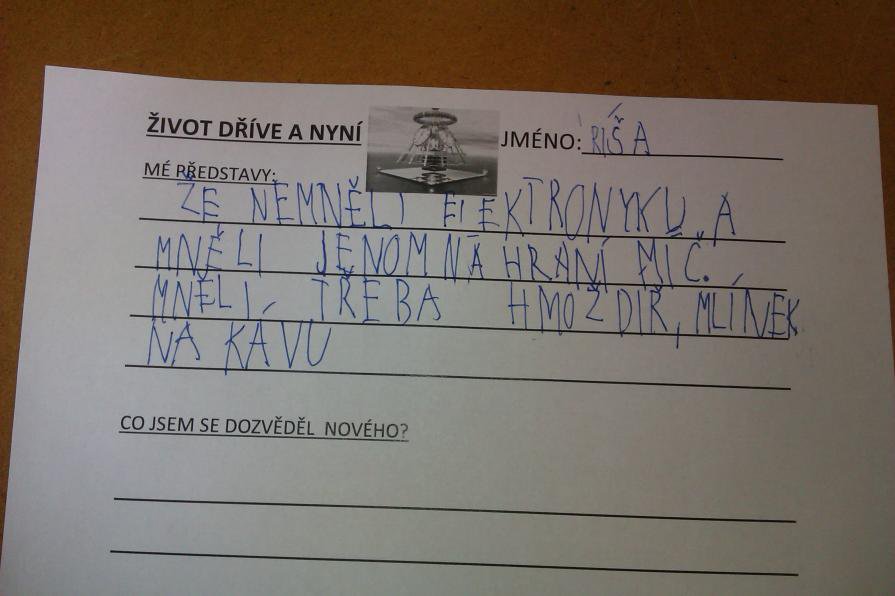 ŽIVOT DŘÍVE A NYNÍ JMÉNO: RÍŠA
MÉ PŘEDSTAVY:
ŽE NEMNĚLI ElEKTRONYKU A
MNĚLI JENOM NA HRANÍ MÍČ.
MNĚLI TŘEBA HMOŽDIŘ, MLÍNEK
NA KÁVU
CO JSEM SE DOZVĚDĚL NOVÉHO?